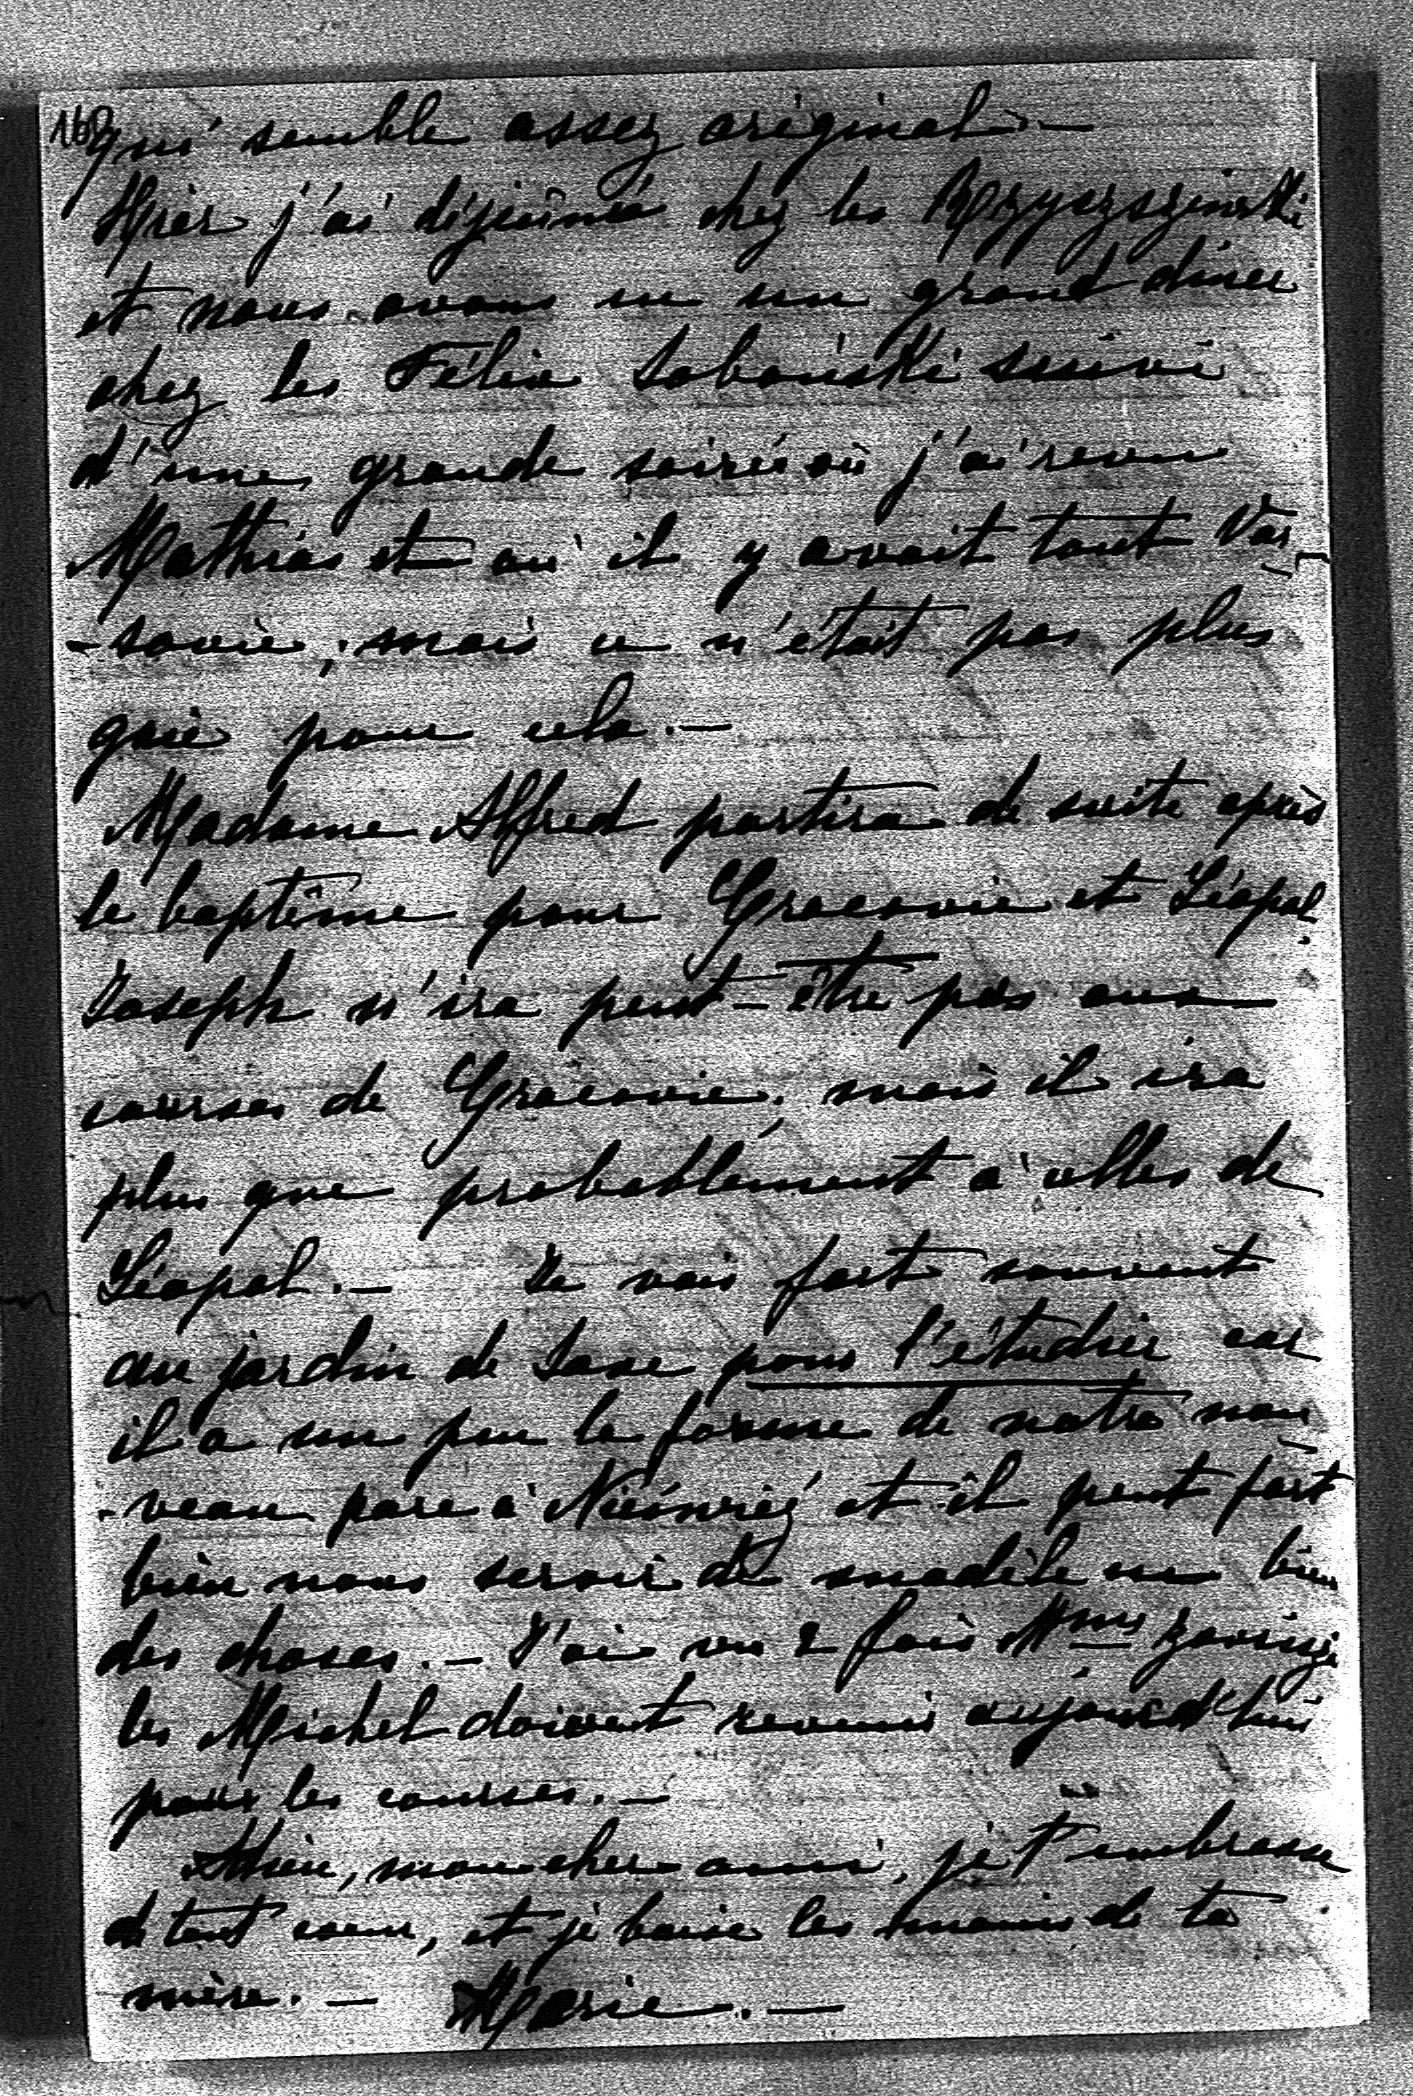 160
qui semble assez original. —
Hier j'ai déjeuné chez les
et nous avons eu un grand dîner
chez les Félix Sobański suivi
d'une grande soirée où j'ai revu
Mathias et où il y avait tout Var-
-sovie, mais ce n'était pas plus
gai pour cela. —
Madame Alfred partira de suite après
le baptême pour Cracovie et Léopol.
Joseph n'ira peut-être pas aux
courses de Cracovie, mais il ira
plus que probablement à celles de
Léopol. — Je vais fort souvent
au jardin de Saxe pour l'étudier car
il a un peu la forme de notre nou-
-veau parc à et il peut fort
bien nous servir de modèle en bien
des choses. — J'ai vu 2 fois Mme
les Michel doivent revenir aujourd'hui
pour les courses. —
Adieu, mon cher ami, je t'embrasse
de tout coeur, et je baise les mains de ta
mère. — Marie. —